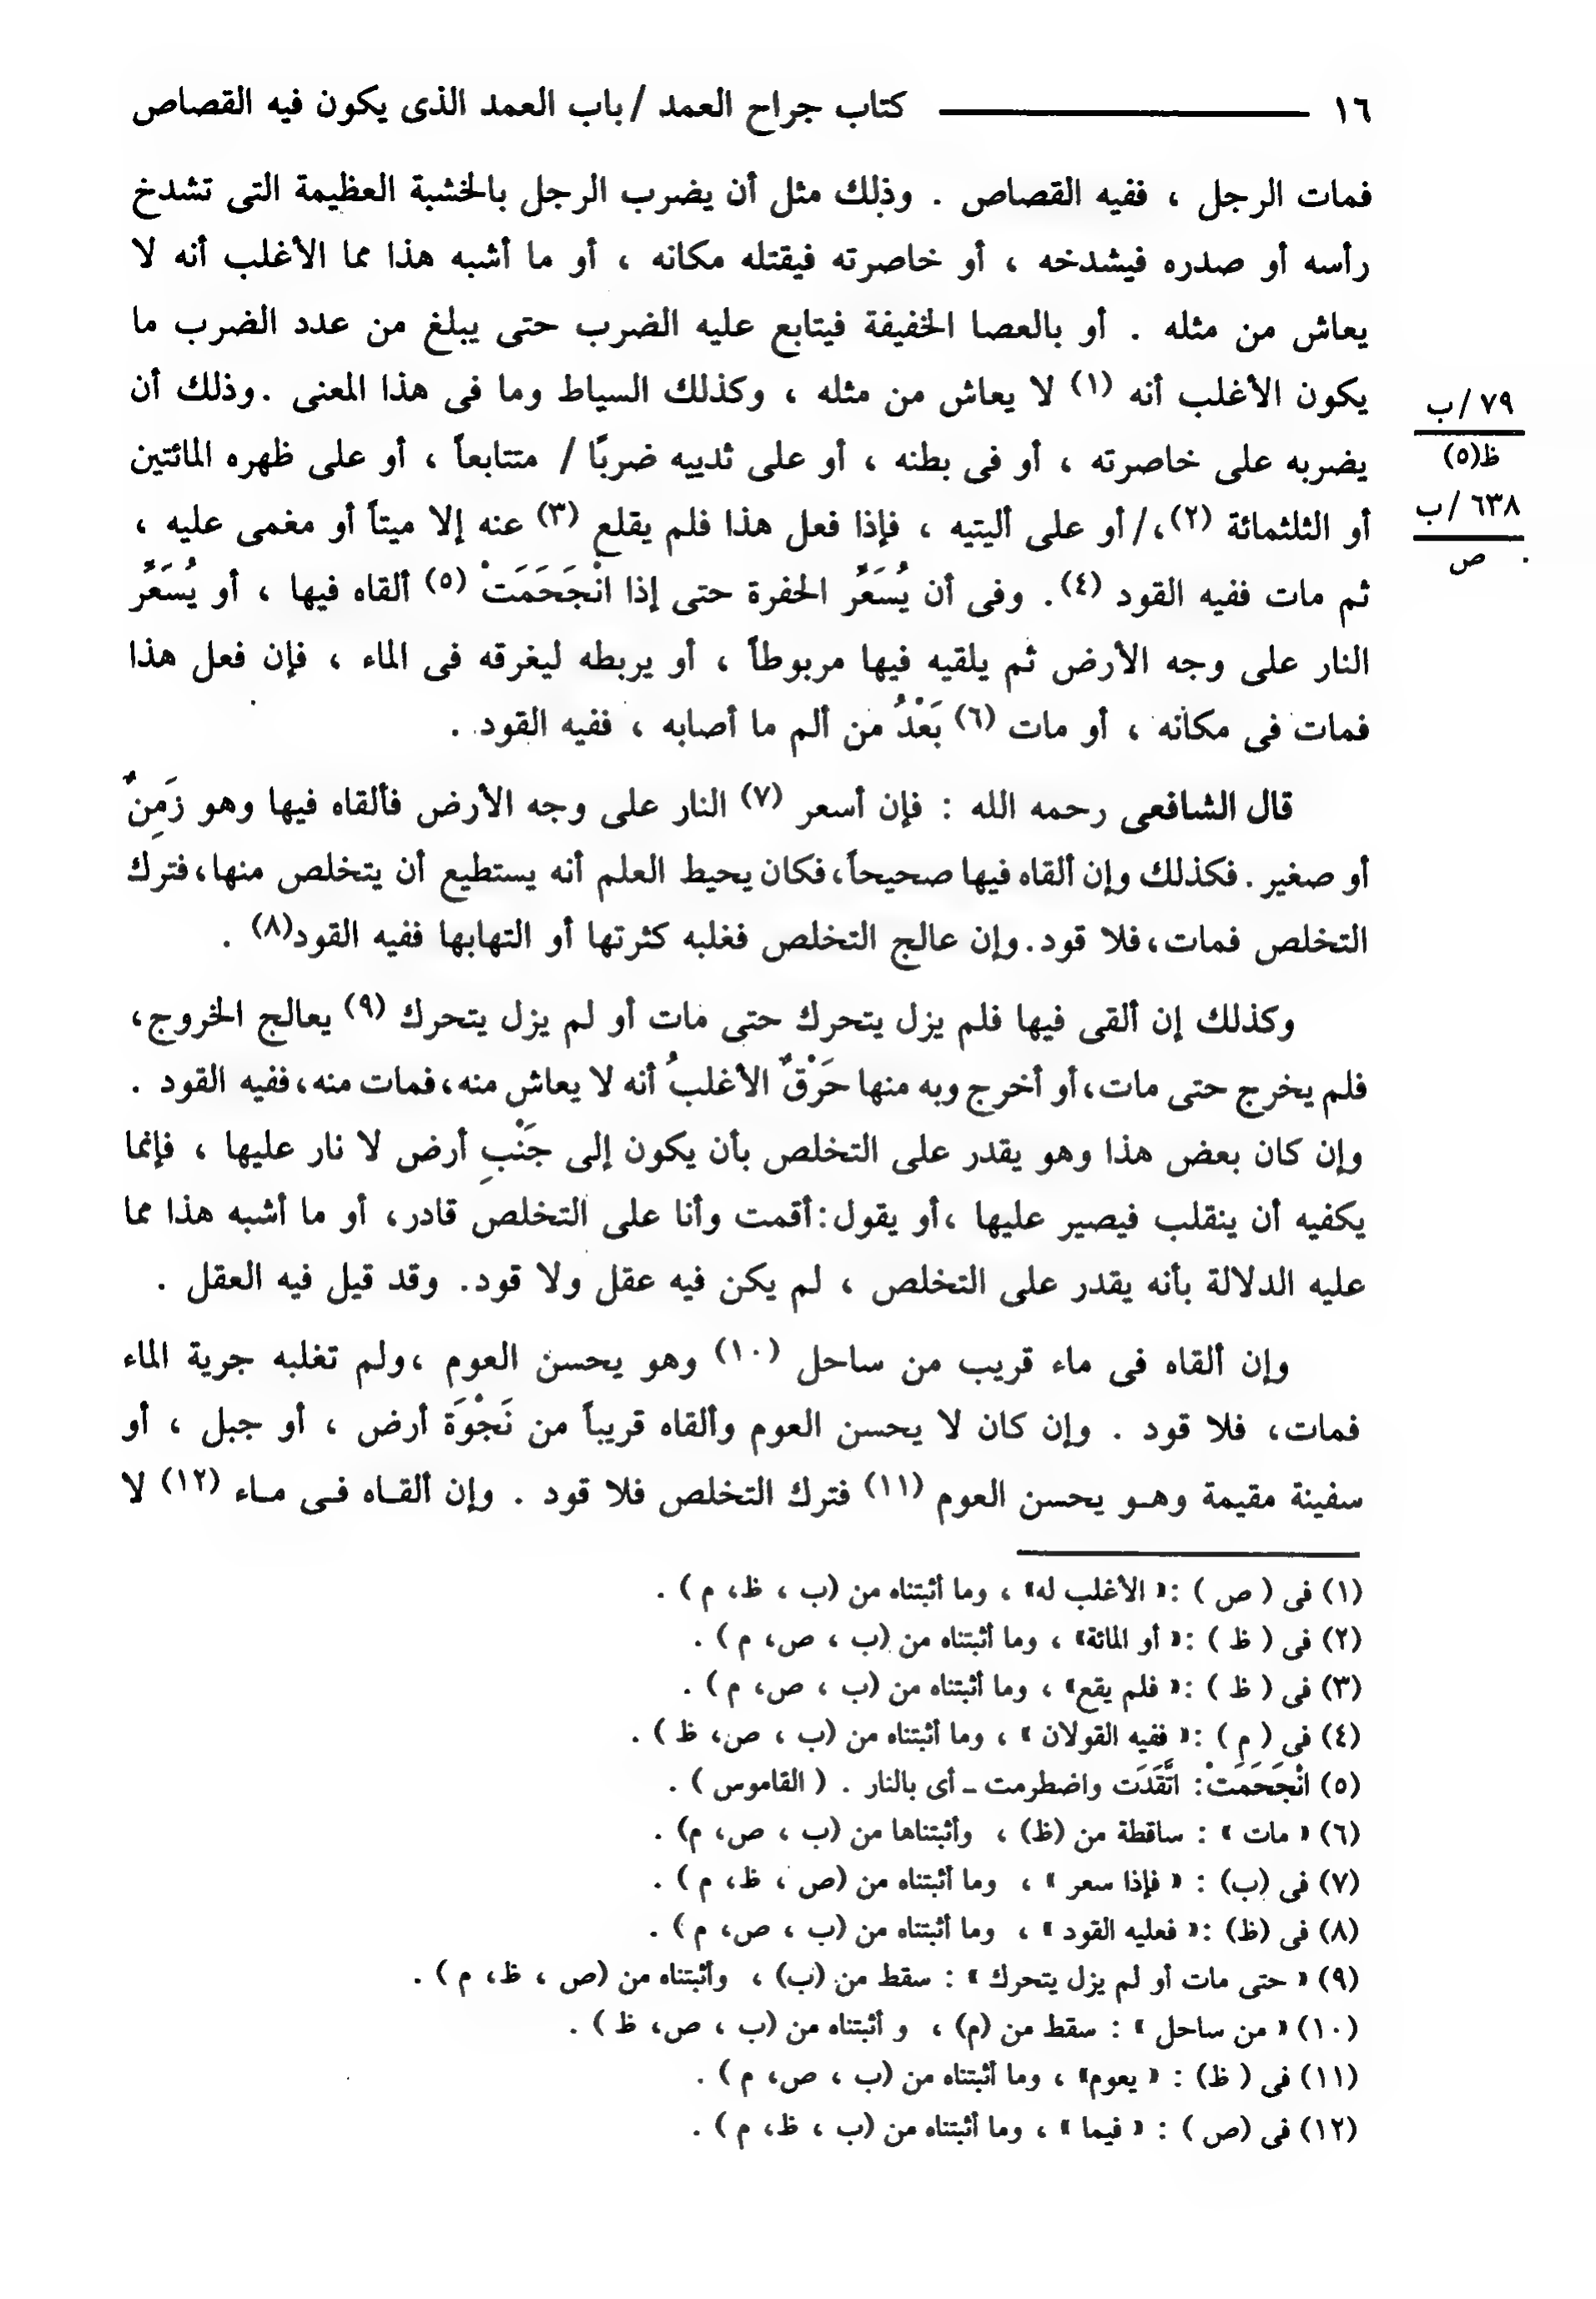 ١٦ ــــــــــــ كتاب جراح العمد / باب العمد الذى يكون فيه القصاص
فمات الرجل ، ففيه القصاص . وذلك مثل أن يضرب الرجل بالخشبة العظيمة التى تشدخ
رأسه أو صدره فيشدخه ، أو خاصرته فيقتله مكانه ، أو ما أشبه هذا مما الأغلب أنه لا
يعاش من مثله . أو بالعصا الخفيفة فيتابع عليه الضرب حتى يبلغ من عدد الضرب ما
يكون الأغلب أنه (١) لا يعاش من مثله ، وكذلك السياط وما فى هذا المعنى . وذلك أن
٧٩ /ب
يضربه على خاصرته ، أو فى بطنه ، أو على ثدييه ضربًا / متتابعاً ، أو على ظهره المائتين
ظ(٥)
أو الثلثمائة (٢)،/ أو على أليتيه ، فإذا فعل هذا فلم يقلع (٣) عنه إلا ميتاً أو مغمى عليه ،
٦٣٨ /ب
ص
ثم مات ففيه القود (٤). وفى أن يُسَعِّرَ الحفرة حتى إذا انْجَحَمَتْ (٥) ألقاه فيها ، أو يُسَعِّرَ
النار على وجه الأرض ثم يلقيه فيها مربوطاً ، أو يربطه ليغرقه فى الماء ، فإن فعل هذا
فمات فى مكانه ، أو مات (٦) بَعْدُ من ألم ما أصابه ، ففيه القود .
قال الشافعى رحمه الله : فإن أسعر (٧) النار على وجه الأرض فألقاه فيها وهو زَمِنٌ
أو صغير . فكذلك وإن ألقاه فيها صحيحاً، فكان يحيط العلم أنه يستطيع أن يتخلص منها، فترك
التخلص فمات، فلا قود. وإن عالج التخلص فغلبه كثرتها أو التهابها ففيه القود(٨) .
وكذلك إن ألقى فيها فلم يزل يتحرك حتى مات أو لم يزل يتحرك (٩) يعالج الخروج،
فلم يخرج حتى مات، أو أخرج وبه منها حَرْقٌ الأغلبُ أنه لا يعاش منه، فمات منه، ففيه القود .
وإن كان بعض هذا وهو يقدر على التخلص بأن يكون إلى جَنْبِ أرض لا نار عليها ، فإنما
يكفيه أن ينقلب فيصير عليها ، أو يقول: أقمت وأنا على التخلص قادر، أو ما أشبه هذا مما
عليه الدلالة بأنه يقدر على التخلص ، لم يكن فيه عقل ولا قود. وقد قيل فيه العقل .
وإن ألقاه فى ماء قريب من ساحل (١٠) وهو يحسن العوم ، ولم تغلبه جرية الماء
فمات، فلا قود . وإن كان لا يحسن العوم وألقاه قريباً من نَجْوَة أرض ، أو جبل ، أو
سفينة مقيمة وهـو يحسن العوم (١١) فترك التخلص فلا قود . وإن ألقـاه فـى مـاء (١٢) لا
(١) فى ( ص ) :« الأغلب له» ، وما أثبتناه من (ب ، ظ، م ) .
(٢) فى ( ظ ) :« أو المائة» ، وما أثبتناه من (ب ، ص، م ) .
(٣) فى ( ظ ) :« فلم يقع» ، وما أثبتناه من (ب ، ص، م ) .
(٤) فى ( م ) :« ففيه القولان » ، وما أثبتناه من (ب ، ص، ظ ) .
(٥) انْجَحَمَتْ: اتَّقَدَت واضطرمت ـ أى بالنار . ( القاموس ) .
(٦) « مات » : ساقطة من (ظ) ، وأثبتناها من (ب ، ص، م) .
(٧) فى (ب) : « فإذا سعر » ، وما أثبتناه من (ص ، ظ، م ) .
(٨) فى (ظ) :« فعليه القود » ، وما أثبتناه من (ب ، ص، م ) .
(٩) « حتى مات أو لم يزل يتحرك » : سقط من (ب) ، وأثبتناه من (ص ، ظ، م ) .
(١٠) « من ساحل » : سقط من (م) ، و أثبتناه من (ب ، ص، ظ ) .
(١١) فى ( ظ) : « يعوم» ، وما أثبتناه من (ب ، ص، م ) .
(١٢) فى (ص ) : « فيما » ، وما أثبتناه من (ب ، ظ، م ) .